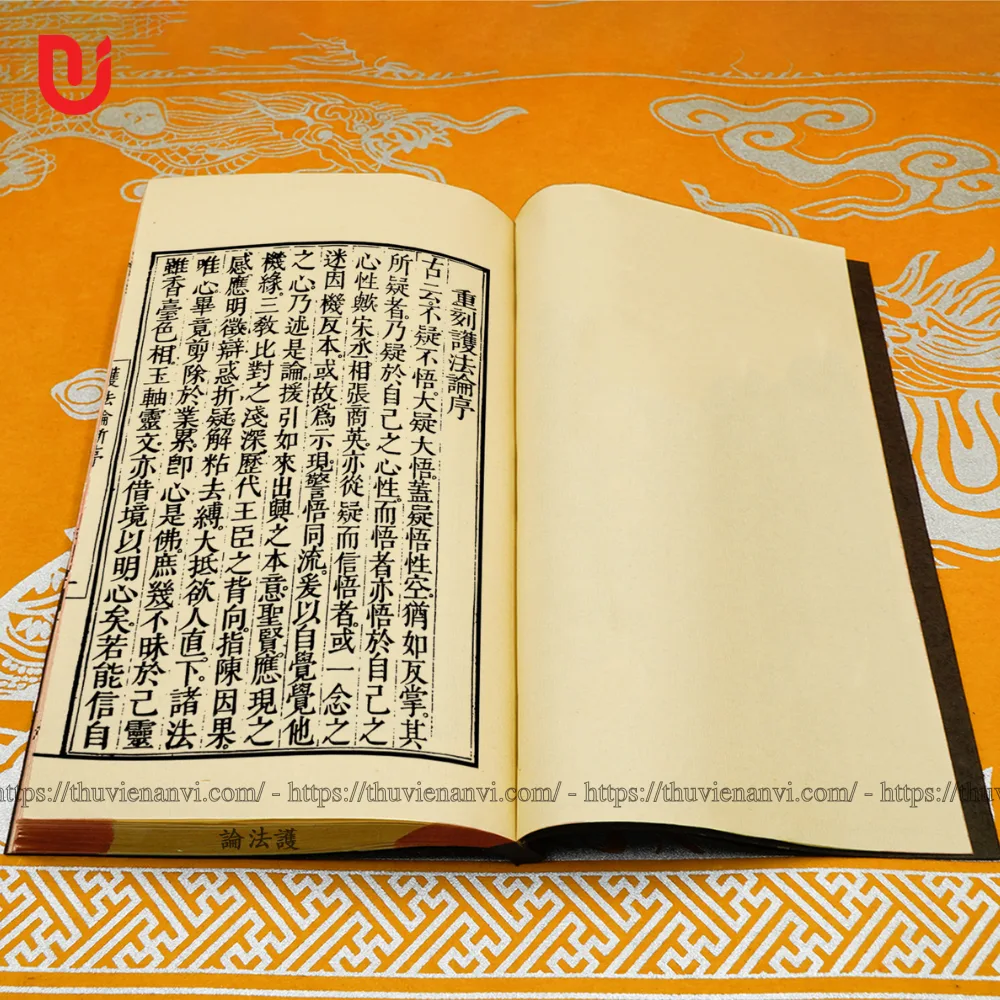 重刻護法論序
古云。不疑不悟。大疑大悟。蓋疑悟性空。猶如反掌。其
所疑者。乃疑於自己之心性。而悟者亦悟於自己之
心性歟。宋丞相張商英。亦從疑而信悟者。或一念之
迷。因機反本。或故爲示現。警悟同流。爰以自覺覺他
之心。乃述是論。援引如來出興之本意。聖賢應現之
機緣。三教比對之淺深。歷代王臣之背向。指陳因果。
感應明徵。辯惑折疑。解粘去縛。大抵欲人直下。諸法
唯心。畢竟剪除於業累。卽心是佛。庶幾不昧於己靈
雖香臺色相。玉軸靈文。亦借境以明心矣。若能信自
護法論序
一
護法論
https://thuvienanvi.com/ - https://thuvienanvi.com/ - https://thuvienanvi.com/ - https://thuvienanvi.com/